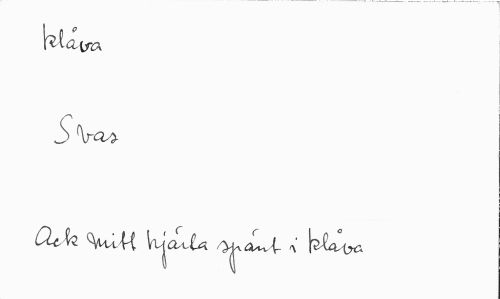 klåva
Svas
Ack mitt hjärta spänt i klåva